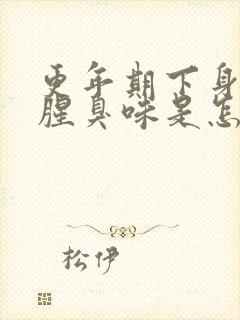 更年期下身
腥臭味是怎
松伊